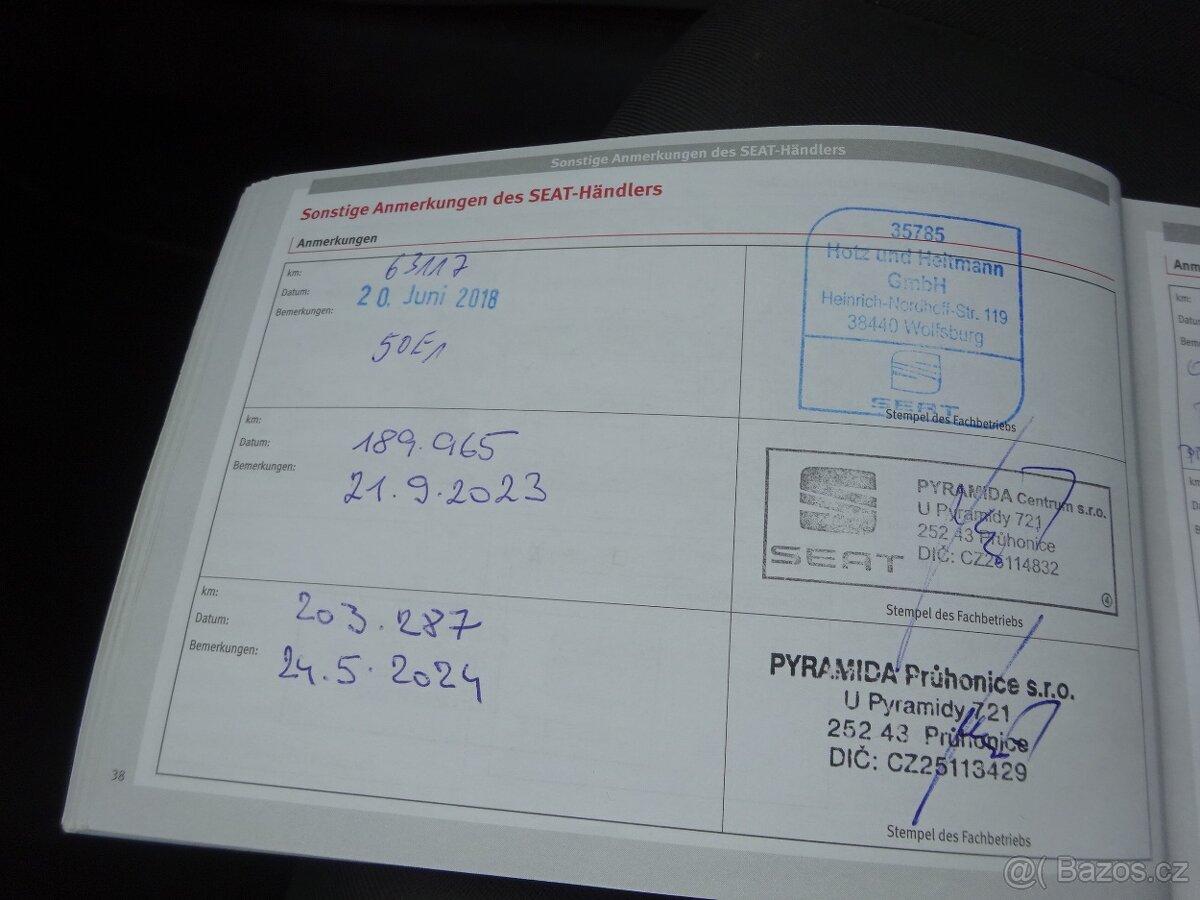 Sonstige Anmerkungen des SEAT-Händlers
Sonstige Anmerkungen des SEAT-Händlers
Anmerkungen
km: 63117
Datum: 20. Juni 2018
Bemerkungen:
50E1
35785
Hotz und Heitmann
GmbH
Heinrich-Nordhoff-Str. 119
38440 Wolfsburg
SEAT
Stempel des Fachbetriebs
km: 189.965
Datum: 21.9.2023
Bemerkungen:
SEAT
PYRAMIDA Centrum s.r.o.
U Pyramidy 721
252 43 Průhonice
DIČ: CZ26114832
4
Stempel des Fachbetriebs
km: 203.287
Datum: 24.5.2024
Bemerkungen:
PYRAMIDA Průhonice s.r.o.
U Pyramidy 721
252 43 Průhonice
DIČ: CZ25113429
Stempel des Fachbetriebs
38
Anm
km:
Datu
Bem
@( Bazos.cz